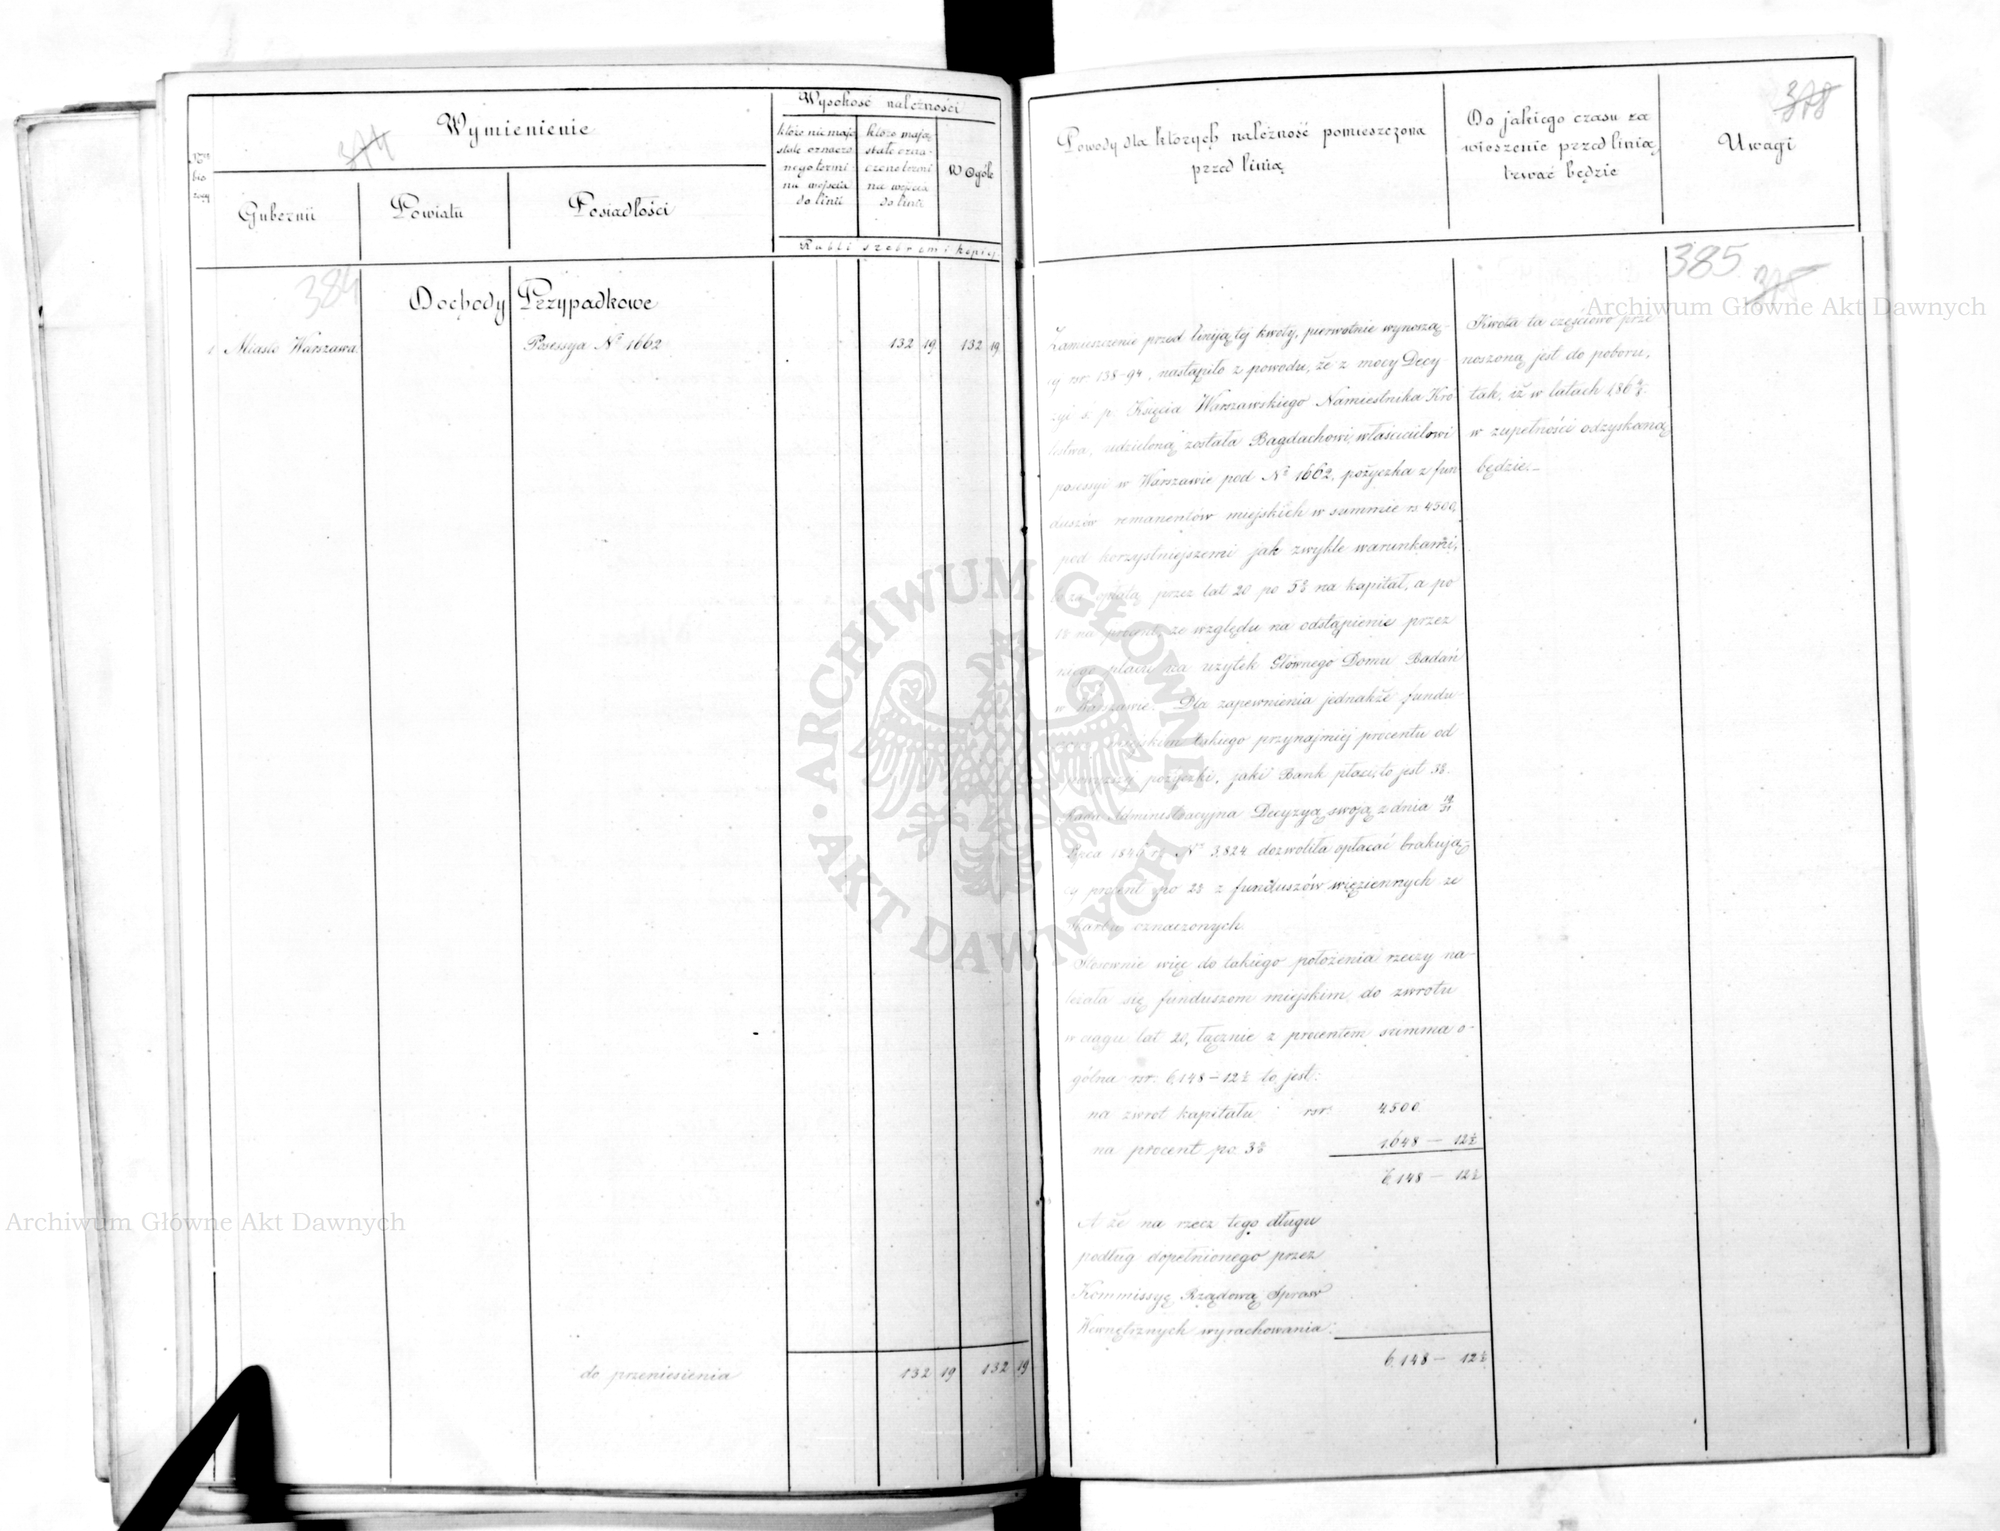 374
Wymienienie
Wysokość należności
które nie mają
stale oznaczo
nego termi
nu wejścia
do linii
które mają
stale ozna-
czone termi
nu wejścia
do linii
W Ogóle
Gubernii
Powiatu
Posiadłości
Rubli srebrem i kopiej.
384
Dochody Przypadkowe
1 Miasto Warszawa.
Posessya Nº 1662
132 19 132 19
do przeniesienia
132 19 132 19
378
Powody dla których należność pomieszczona
przed linią
Do jakiego czasu za
wieszenie przed linią
trwać będzie
Uwagi
385
Zamieszczenie przed liniją tej kwoty, pierwotnie wynoszą-
cej rsr 138-94, nastąpiło z powodu, że z mocy Decy-
zyi ś. p. Księcia Warszawskiego Namiestnika Kró
lestwa, udzieloną została Bagdachowi, właścicielowi
posessyi w Warszawie pod Nº 1662, pożyczka z fun
duszów remanentów miejskich w summie rs 4500,
pod korzystniejszemi jak zwykle warunkami,
to za opłatą przez lat 20 po 5% na kapitał, a po
1% na procent, ze względu na odstąpienie przez
niego placu na użytek Głównego Domu Badań
w Warszawie. Dla zapewnienia jednakże fundu-
miejskim takiego przynajmiej procentu od
powyższej pożyczki, jaki Bank płaci, to jest 3%.
Rada Administracyjna Decyzyą swoją z dnia 19/31
Lipca 1846 r. Nr 3,824 dozwoliła opłacać brakują-
cy procent po 2% z funduszów więziennych ze
Skarbu oznaczonych.
Stosownie więc do takiego położenia rzeczy na-
leżała się funduszom miejskim, do zwrotu
w ciągu lat 20, łącznie z procentem summa o-
gólna rsr. 6,148 – 12½ to jest:
na zwrot kapitału rsr 4500
na procent po 3% 1,648 – 12½
6,148 – 12½
A że na rzecz tego długu
podług dopełnionego przez
Kommissyę Rządową Spraw
Wewnętrznych wyrachowania:
6,148 – 12½
Kwota ta częściowo prze
noszoną jest do poboru,
tak, iż w latach
w zupełności odzyskaną
będzie.
Archiwum Główne Akt Dawnych
Archiwum Główne Akt Dawnych
ARCHIWUM GŁÓWNE · AKT DAWNYCH ·